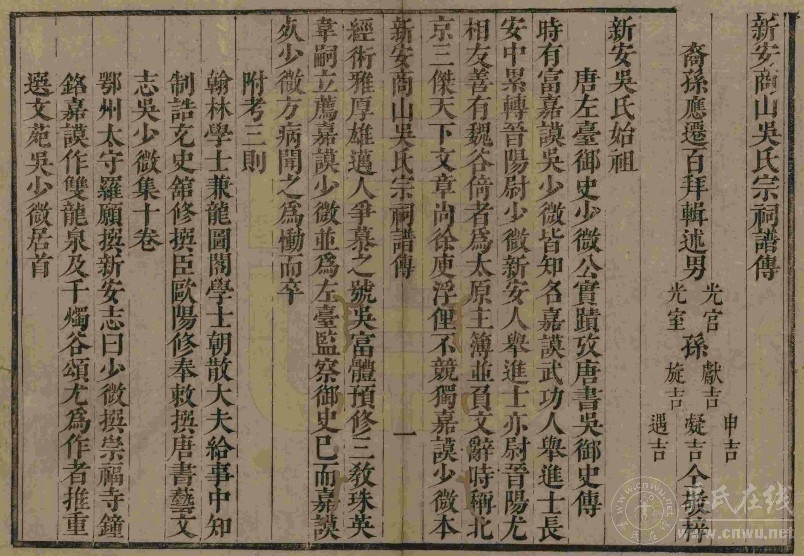 新安商山吳氏宗祠譜傳
裔孫應遷百拜輯述男
光官
光室
孫
獻吉
旋吉
申吉
凝吉
遇吉
仝發梓
新安吳氏始祖
唐左臺御史少微公實蹟攷唐書吳御史傳
時有富嘉謨吳少微皆知名嘉謨武功人舉進士長
安中累轉晉陽尉少微新安人舉進士亦尉晉陽尤
相友善有魏谷倚者為太原主簿並負文辭時稱北
京三傑天下文章尚徐庾浮俚不競獨嘉謨少微本
新安商山吳氏宗祠譜傳
一
經術雅厚雄邁人爭慕之號吳富體預修三教珠英
韋嗣立薦嘉謨少微並為左臺監察御史已而嘉謨
㱙少微方病聞之為慟而卒
附考三則
翰林學士兼龍圖閣學士朝散大夫給事中知
制誥充史館修撰臣歐陽修奉敕撰唐書藝文
志吳少微集十卷
鄂州太守羅願撰新安志曰少微撰崇福寺鐘
銘嘉謨作雙龍泉及千燭谷頌尤為作者推重
選文苑吳少微居首
吳氏在线
www.cnwu.net